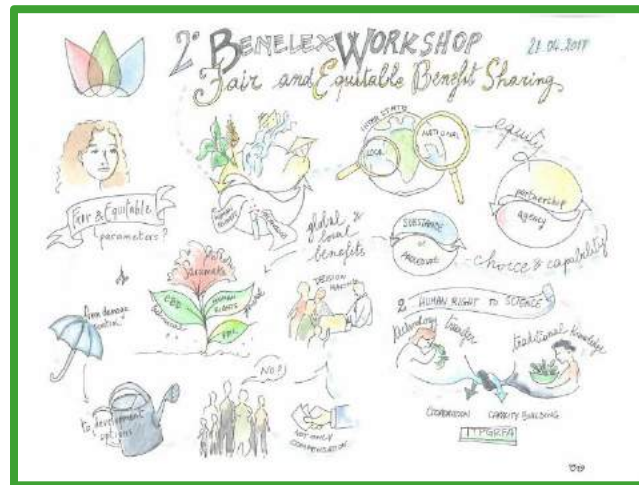 2° BENELEX WORKSHOP
21.04.2017
Fair and Equitable Benefit Sharing
INTRA STATE
LOCAL
NATIONAL
equity
partnership
Agency
Fair & Equitable
parameters?
HUMAN RIGHTS
global &
local
benefits
SUBSTANCE
or
PROCEDURE
choice & capability
Saramaka
CBD
HUMAN
RIGHTS
DECISION
MAKING
2. HUMAN RIGHT TO SCIENCE
technology transfer
traditional knowledge
From damage
to development
options
NO!
NOT ONLY
COMPENSATION
COOPERATION
CAPACITY BUILDING
ITPGRFA